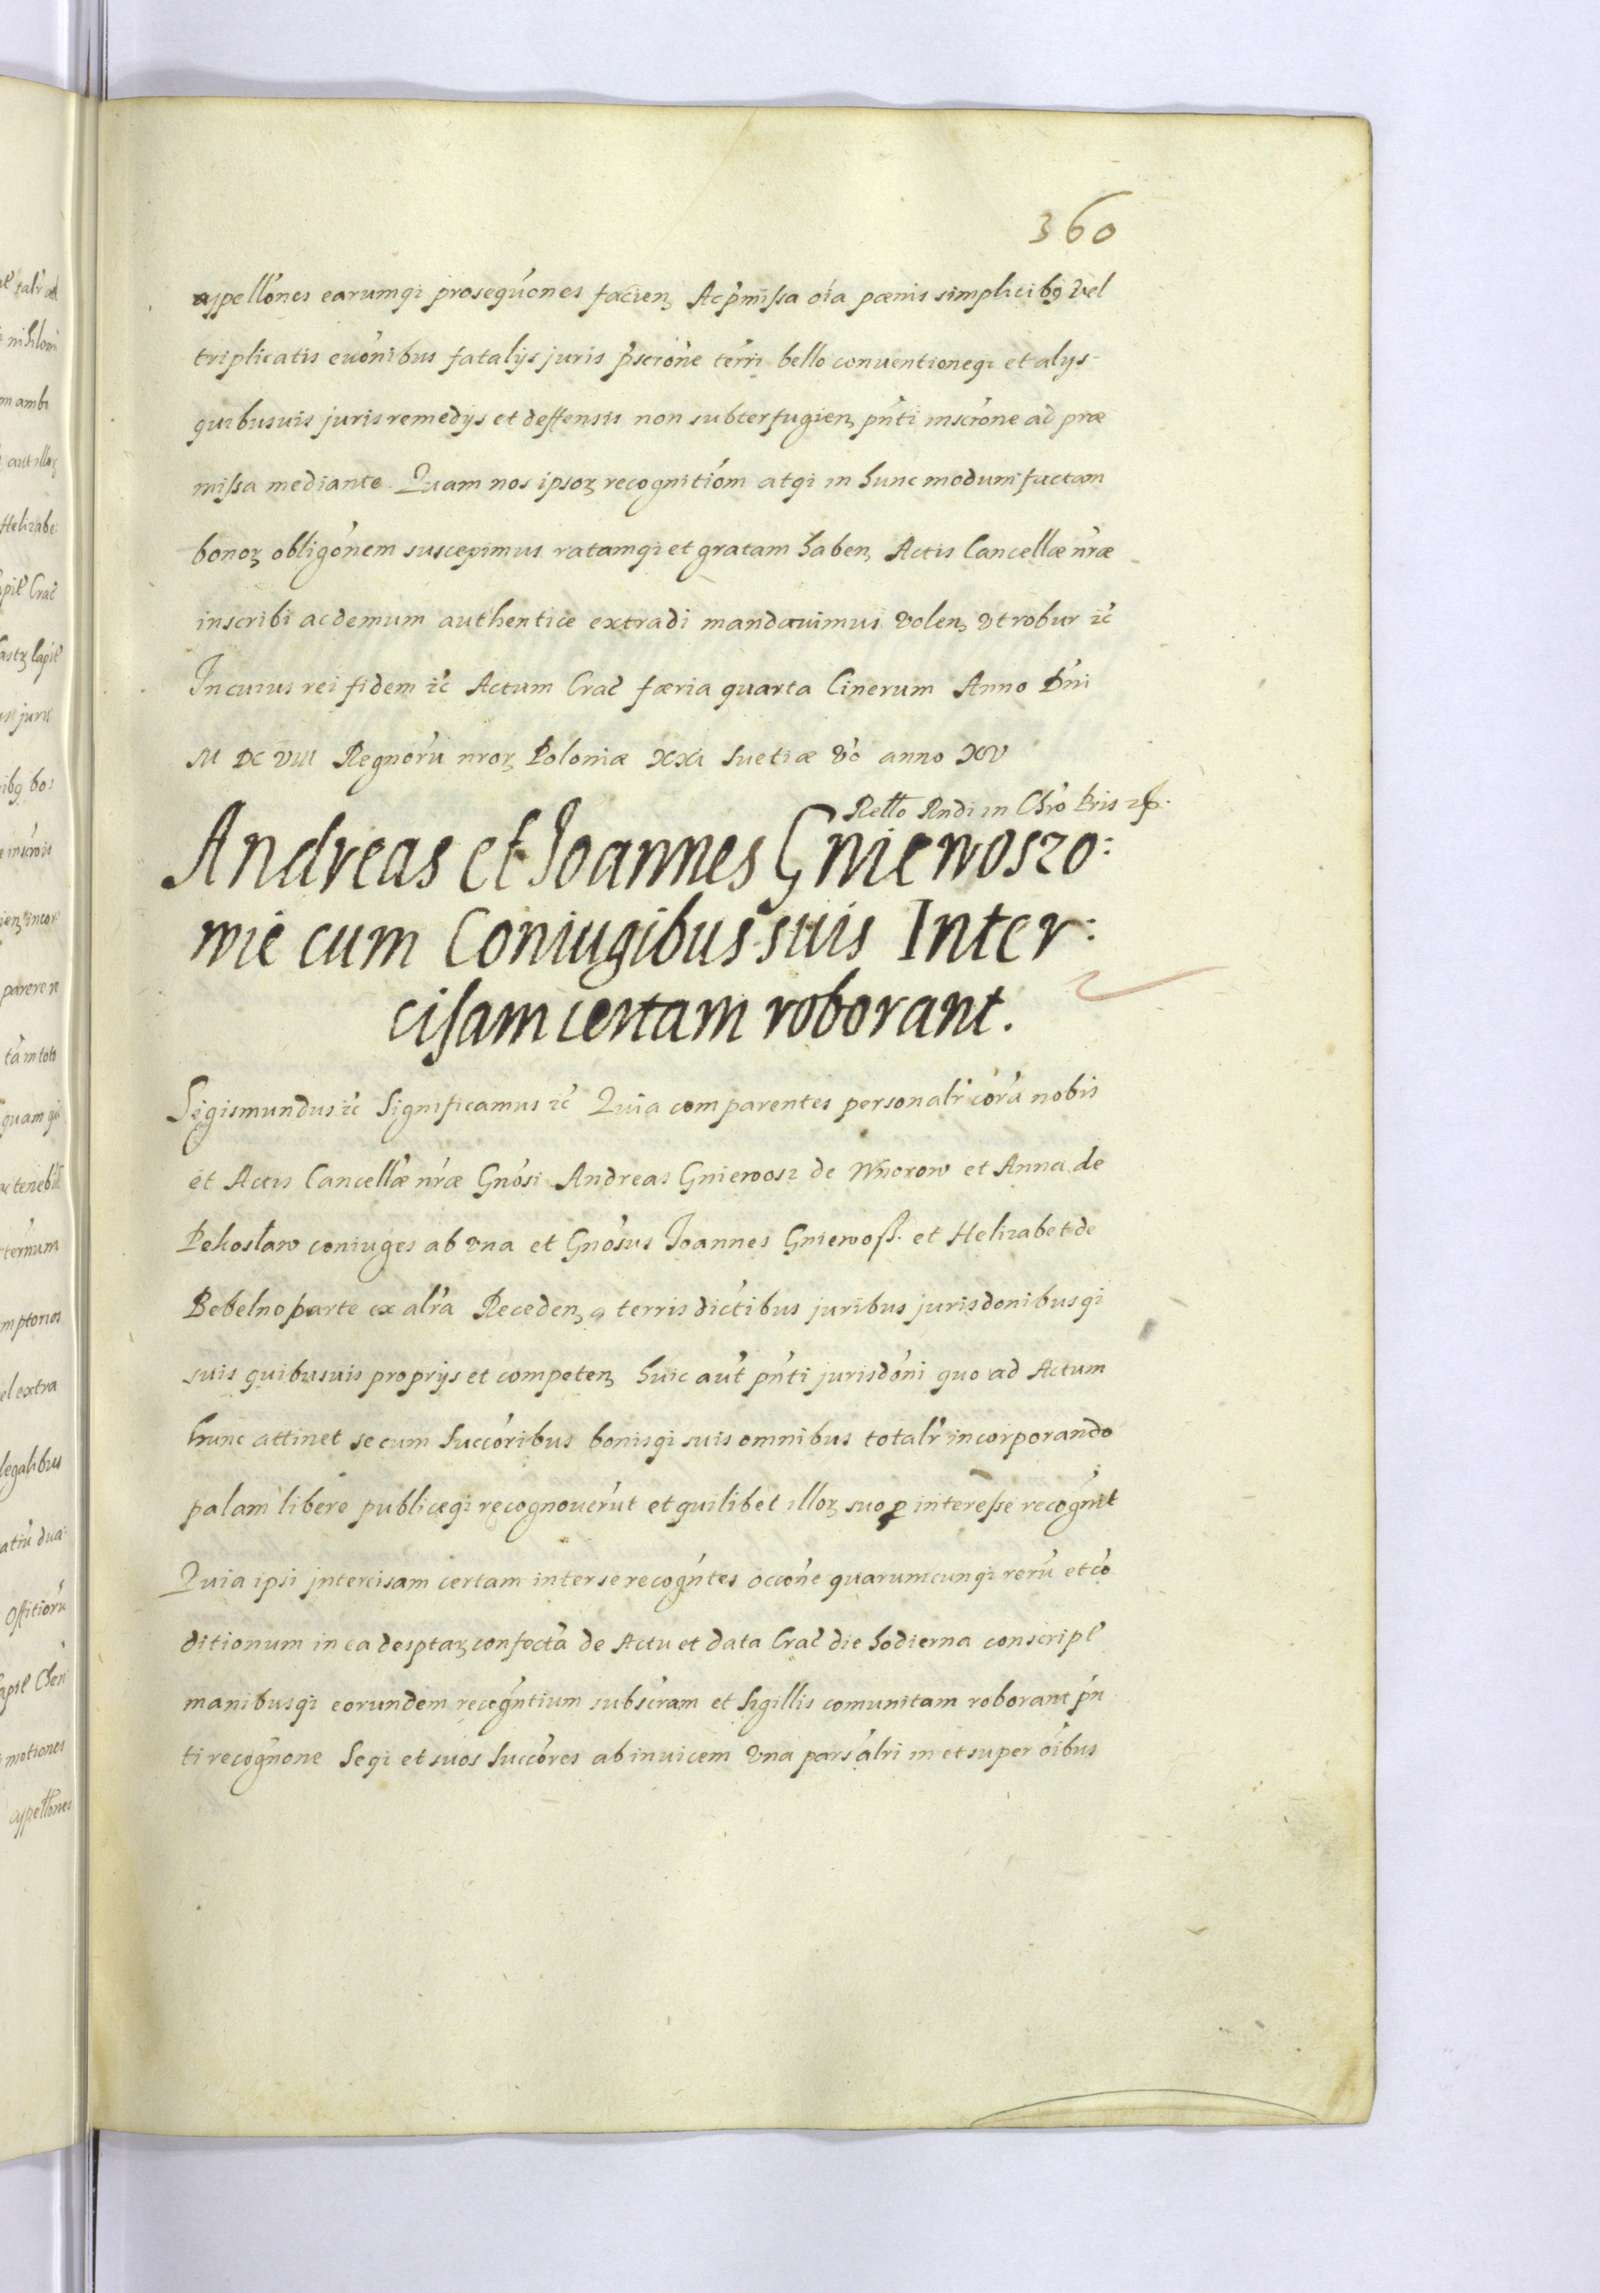 360
appellones earumqi prosequones facien Ac pmissa oia pœnis simplicibq vel
triplicatis euonibus fatalijs juris pscrone terri bello conuentioneqi et alijs
quibusuis juris remedijs et deffensis non subterfugien pnti inscrone ad præ
missa mediante Quam nos ipsoꝝ recognitiom atqi in hunc modum factam
bonoꝝ obligonem suscepimus ratamqi et gratam haben Actis Cancellæ nræ
inscribi ac demum authentice extradi mandauimus volen vt robur zc
In cuius rei fidem zc Actum Crac fœria quarta Cinerum Anno Dni
M DC VIII Regnoru nroꝝ Poloniæ XXI Suetiæ vo anno XV
Rello Rndi in Chro Pris
Andreas et Joannes Gniewoszo:
wie cum Coniugibus suis Inter:
cisam certam roborant.
Sigismundus zc Significamus zc Quia comparentes personalr cora nobis
et Actis Cancellæ nræ Gnosi Andreas Gniewosz de Wnorow et Anna de
Pekosław coniuges ab vna et Gnosus Joannes Gniewoß. et Helizabet de
Bebelno parte ex altra Receden a terris dictibus juribus jurisdonibusqi
suis quibusuis proprijs et competen huic aut pnti jurisdoni quo ad Actum
hunc attinet se cum succoribus bonisqi suis omnibus totalr incorporando
palam libere publiceqi recognouerut et quilibet illoꝝ suo p interesse recognit
Quia ipsi jntercisam certam inter se recogntes occone quarumcunqi reru et co
ditionum in ea desptaꝝ confecta de Actu et data Crac die hodierna conscript
manibusqi eorundem recogntium subscram et sigillis comunitam roborant pn
ti recognone Seqi et suos Succores ab inuicem vna pars alri in et super oibus